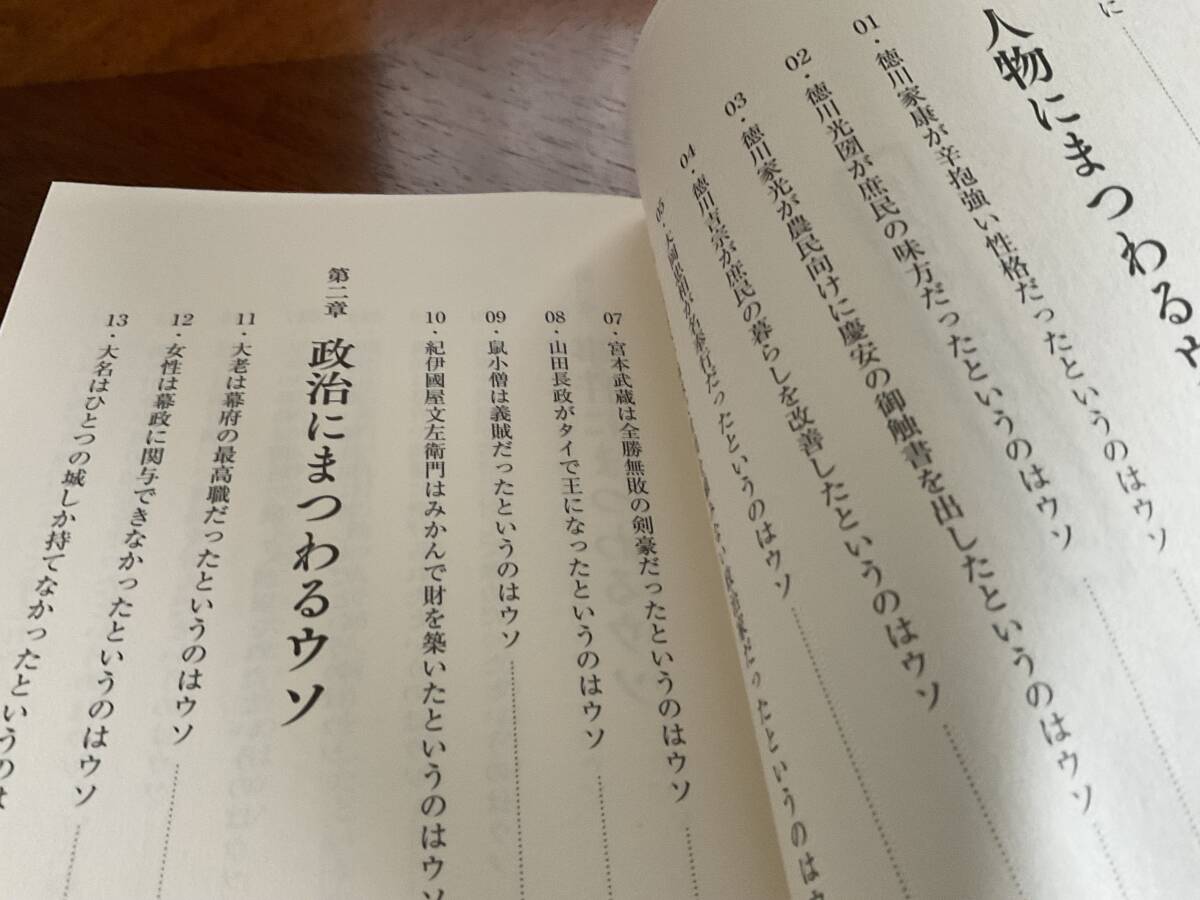 に
人物にまつわるウ
01・徳川家康が辛抱強い性格だったというのはウソ
02・徳川光圀が庶民の味方だったというのはウソ
03・徳川家光が農民向けに慶安の御触書を出したというのはウソ
04・徳川吉宗が庶民の暮らしを改善したというのはウソ
05・大岡忠相が名奉行だったというのはウソ
政治家だったというのはウ
07・宮本武蔵は全勝無敗の剣豪だったというのはウソ
08・山田長政がタイで王になったというのはウソ
09・鼠小僧は義賊だったというのはウソ
10・紀伊國屋文左衛門はみかんで財を築いたというのはウソ
第二章 政治にまつわるウソ
11・大老は幕府の最高職だったというのはウソ
12・女性は幕政に関与できなかったというのはウソ
13・大名はひとつの城しか持てなかったというのはウソ
というのは